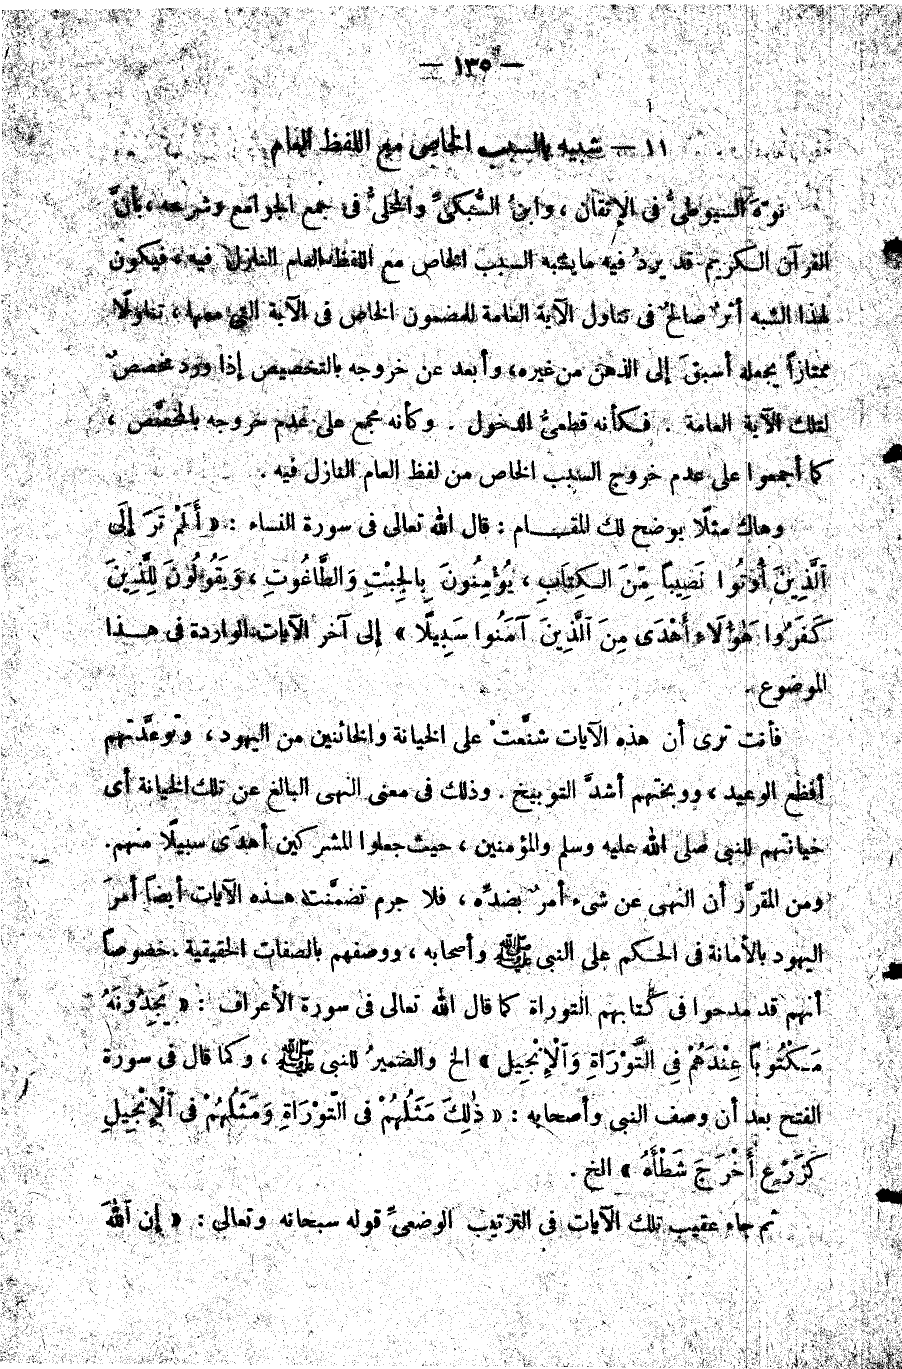 — ١٣٥ —
١١ — شبيه بالسبب الخاص مع اللفظ العام
نوّه السيوطىُّ فى الإتقان ، وابنُ السُّبكىِّ والمحلىُّ فى جمع الجوامع وشرحه ، بأنّ
القرآن الكريم قد يردُ فيه ما يشبه السبب الخاص مع اللفظ العام النازل فيه ، فيكون
لهذا الشبه أثرٌ صالحٌ فى تناول الآية العامة للمضمون الخاص فى الآية التى معها ، تناولًا
ممتازاً يجعله أسبقَ إلى الذهن من غيره ، وأبعد عن خروجه بالتخصيص إذا ورد مخصصٌ
لتلك الآية العامة . فكأنه قطعىُّ الدخول . وكأنه مجمع على عدم خروجه بالمخصِّص ،
كما أجمعوا على عدم خروج السبب الخاص من لفظ العام النازل فيه .
وهاك مثلًا يوضح لك المقـام : قال الله تعالى فى سورة النساء : « أَلَمْ تَرَ إِلَى
الَّذِينَ أُوتُوا نَصِيباً مِّنَ الكِتَابِ ، يُؤْمِنُونَ بِالجِبْتِ وَالطَّاغُوتِ ، وَيَقُولُونَ لِلَّذِينَ
كَفَرُوا هَؤُلَاءِ أَهْدَى مِنَ الَّذِينَ آمَنُوا سَبِيلًا » إلى آخر الآيات الواردة فى هـذا
الموضوع .
فأنت ترى أن هذه الآيات شنَّعتْ على الخيانة والخائنين من اليهود ، وتوعَّدتهم
أفظع الوعيد ، ووبختهم أشدَّ التوبيخ . وذلك فى معنى النهى البالغ عن تلك الخيانة أى
خيانتهم للنبى صلى الله عليه وسلم والمؤمنين ، حيث جعلوا المشركين أهدَى سبيلًا منهم .
ومن المقرَّر أن النهى عن شىء أمرٌ بضدِّه ، فلا جرم تضمَّنت هـذه الآيات أيضاً أمرَ
اليهود بالأمانة فى الحكم على النبى ﷺ وأصحابه ، ووصفهم بالصفات الحقيقية . خصوصاً
أنهم قد مدحوا فى كتابهم التوراة كما قال الله تعالى فى سورة الأعراف : « يَجِدُونَهُ
مَكْتُوباً عِنْدَهُمْ فِى التَّوْرَاةِ وَالْإِنْجِيلِ » الخ والضميرُ للنبى ﷺ ، وكما قال فى سورة
الفتح بعد أن وصف النبى وأصحابه : « ذٰلِكَ مَثَلُهُمْ فى التَّوْرَاةِ وَمَثَلُهُمْ فى الْإِنْجِيلِ
كَزَرْعٍ أَخْرَجَ شَطْأَهُ » الخ .
ثم جاء عقيب تلك الآيات فى الترتيب الوضعىِّ قوله سبحانه وتعالى : « إن اللهَ